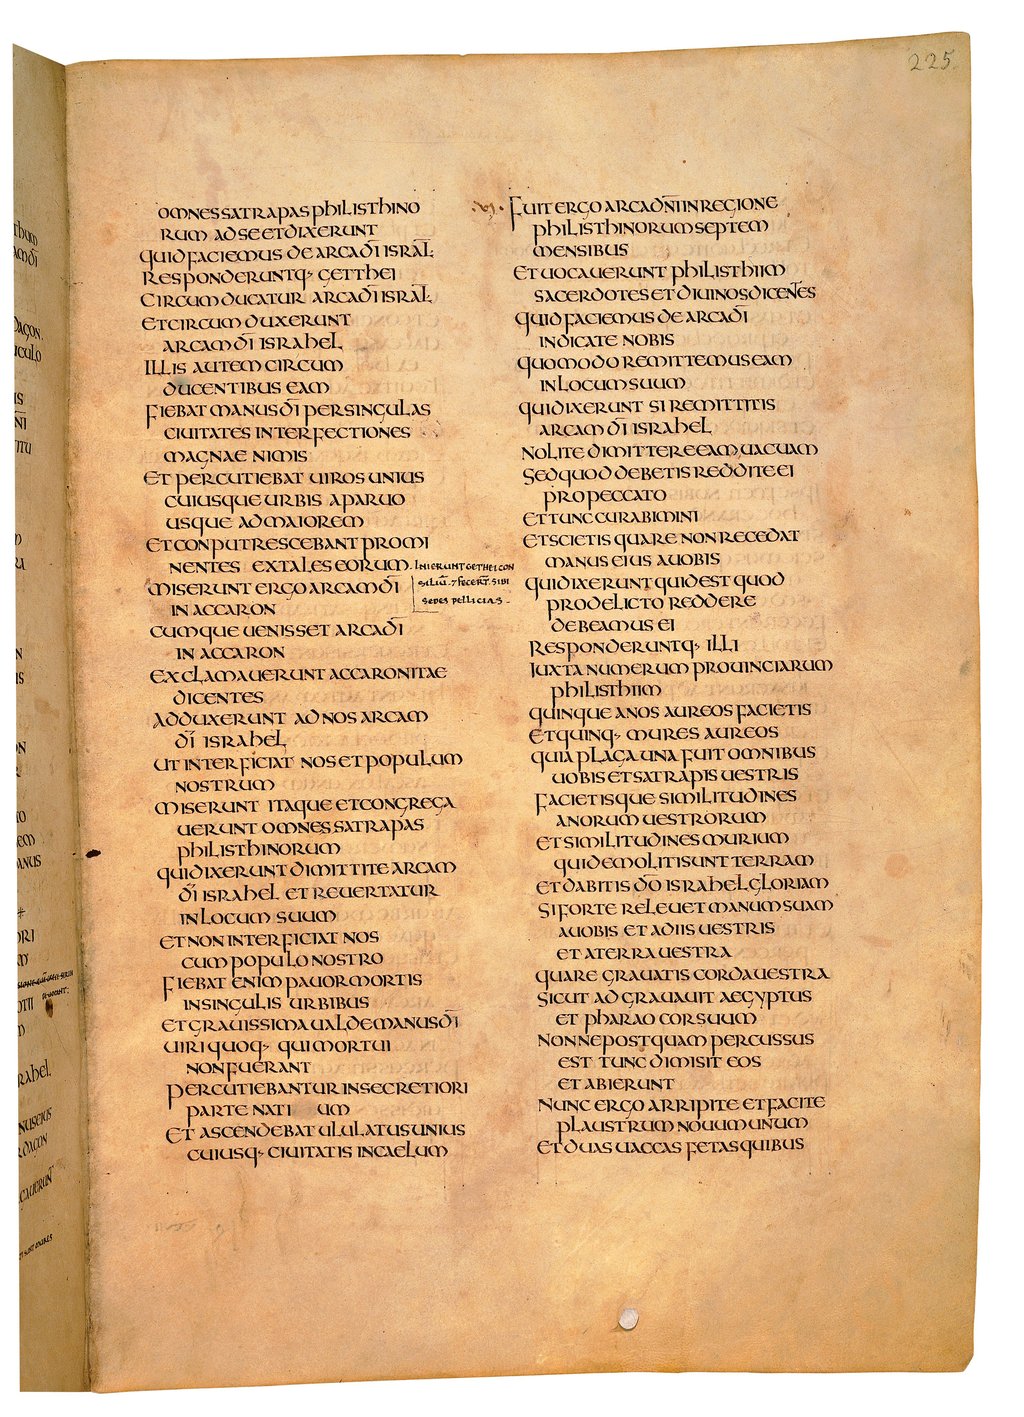 225
OMNES SATRAPAS PHILISTHINO
RUM AD SE ET DIXERUNT
QUID FACIEMUS DE ARCA DĪ ISRAL̄
RESPONDERUNTQ· GETTHEI
CIRCUMDUCATUR ARCA DĪ ISRAL̄
ET CIRCUMDUXERUNT
ARCAM DĪ ISRAHEL
ILLIS AUTEM CIRCUM
DUCENTIBUS EAM
FIEBAT MANUS DĪ PER SINGULAS
CIUITATES INTERFECTIONES
MAGNAE NIMIS
ET PERCUTIEBAT UIROS UNIUS
CUIUSQUE URBIS A PARUO
USQUE AD MAIOREM
ET CONPUTRESCEBANT PROMI
NENTES EXTALES EORUM.
INIERUNT GETHEI CON
SILIŪ ⁊ FECERT̄ SIBI
SEDES PELLICIAS
MISERUNT ERGO ARCAM DĪ
IN ACCARON
CUMQUE UENISSET ARCA DĪ
IN ACCARON
EXCLAMAUERUNT ACCARONITAE
DICENTES
ADDUXERUNT AD NOS ARCAM
DĪ ISRAHEL
UT INTERFICIAT NOS ET POPULUM
NOSTRUM
MISERUNT ITAQUE ET CONGREGA
UERUNT OMNES SATRAPAS
PHILISTHINORUM
QUI DIXERUNT DIMITTITE ARCAM
DĪ ISRAHEL ET REUERTATUR
IN LOCUM SUUM
ET NON INTERFICIAT NOS
CUM POPULO NOSTRO
FIEBAT ENIM PAUOR MORTIS
IN SINGULIS URBIBUS
ET GRAUISSIMA UALDE MANUS DĪ
UIRI QUOQ· QUI MORTUI
NON FUERANT
PERCUTIEBANTUR IN SECRETIORI
PARTE NATI UM
ET ASCENDEBAT ULULATUS UNIUS
CUIUSQ· CIUITATIS IN CAELUM
FUIT ERGO ARCA DN̄I IN REGIONE
PHILISTHINORUM SEPTEM
MENSIBUS
ET UOCAUERUNT PHILISTHIIM
SACERDOTES ET DIUINOS DICEN̄ES
QUID FACIEMUS DE ARCA DĪ
INDICATE NOBIS
QUOMODO REMITTEMUS EAM
IN LOCUM SUUM
QUI DIXERUNT SI REMITTITIS
ARCAM DĪ ISRAHEL
NOLITE DIMITTERE EAM UACUAM
SED QUOD DEBETIS REDDITE EI
PRO PECCATO
ET TUNC CURABIMINI
ET SCIETIS QUARE NON RECEDAT
MANUS EIUS A UOBIS
QUI DIXERUNT QUID EST QUOD
PRO DELICTO REDDERE
DEBEAMUS EI
RESPONDERUNTQ· ILLI
IUXTA NUMERUM PROUINCIARUM
PHILISTHIIM
QUINQUE ANOS AUREOS FACIETIS
ET QUINQ· MURES AUREOS
QUIA PLAGA UNA FUIT OMNIBUS
UOBIS ET SATRAPIS UESTRIS
FACIETISQUE SIMILITUDINES
ANORUM UESTRORUM
ET SIMILITUDINES MURIUM
QUI DEMOLITI SUNT TERRAM
ET DABITIS DŌ ISRAHEL GLORIAM
SI FORTE RELEUET MANUM SUAM
A UOBIS ET A DIIS UESTRIS
ET A TERRA UESTRA
QUARE GRAUATIS CORDA UESTRA
SICUT ADGRAUAUIT AEGYPTUS
ET PHARAO COR SUUM
NONNE POSTQUAM PERCUSSUS
EST TUNC DIMISIT EOS
ET ABIERUNT
NUNC ERGO ARRIPITE ET FACITE
PLAUSTRUM NOUUM UNUM
ET DUAS UACCAS FETAS QUIBUS